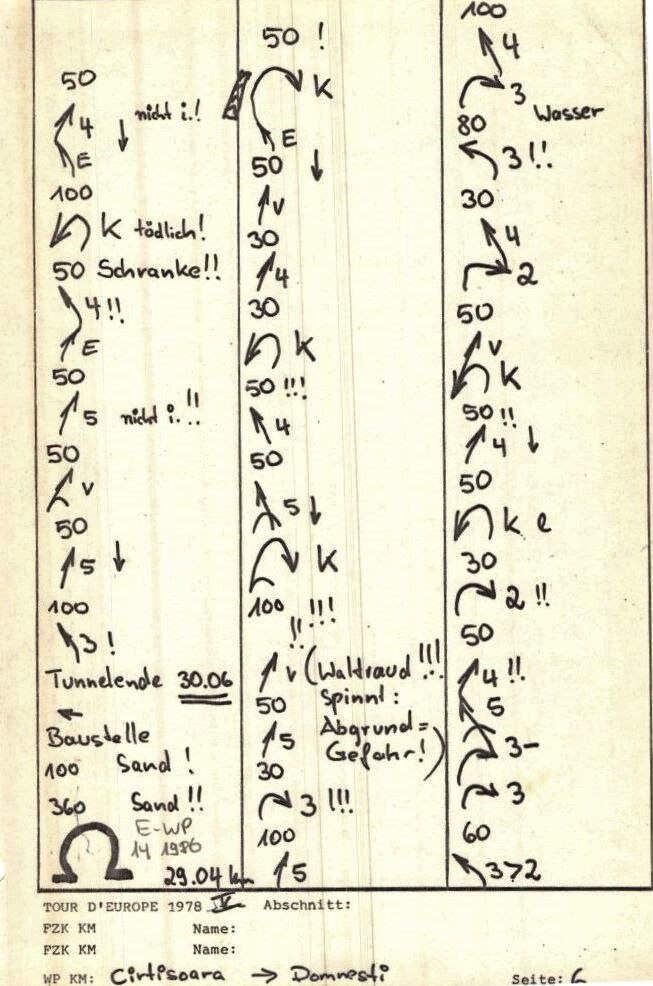 50
4 ↓ nicht i.!
E
100
K tödlich!
50 Schranke!!
4!!
E
50
5 nicht i.!!
50
v
50
5 ↓
100
3!
Tunnelende 30.06
←
Baustelle
100 Sand!
360 Sand!!
E-WP
14 1986
29.04 km
50 !
K
E
50 ↓
v
30
4
30
K
50 !!!
4
50
5 ↓
K
100 !!!
!!
v (Waltraud !!!
50 Spinnt:
5 Abgrund=
30 Gefahr!)
3 !!!
100
5
100
4
3 Wasser
80
3!!
30
4
2
50
v
K
50!!
4 ↓
50
K e
30
2 !!
50
4 !!
5
3-
3
60
3>2
TOUR D'EUROPE 1978 IV Abschnitt:
FZK KM Name:
FZK KM Name:
WP KM: Cirtisoara → Domnesti Seite: 6